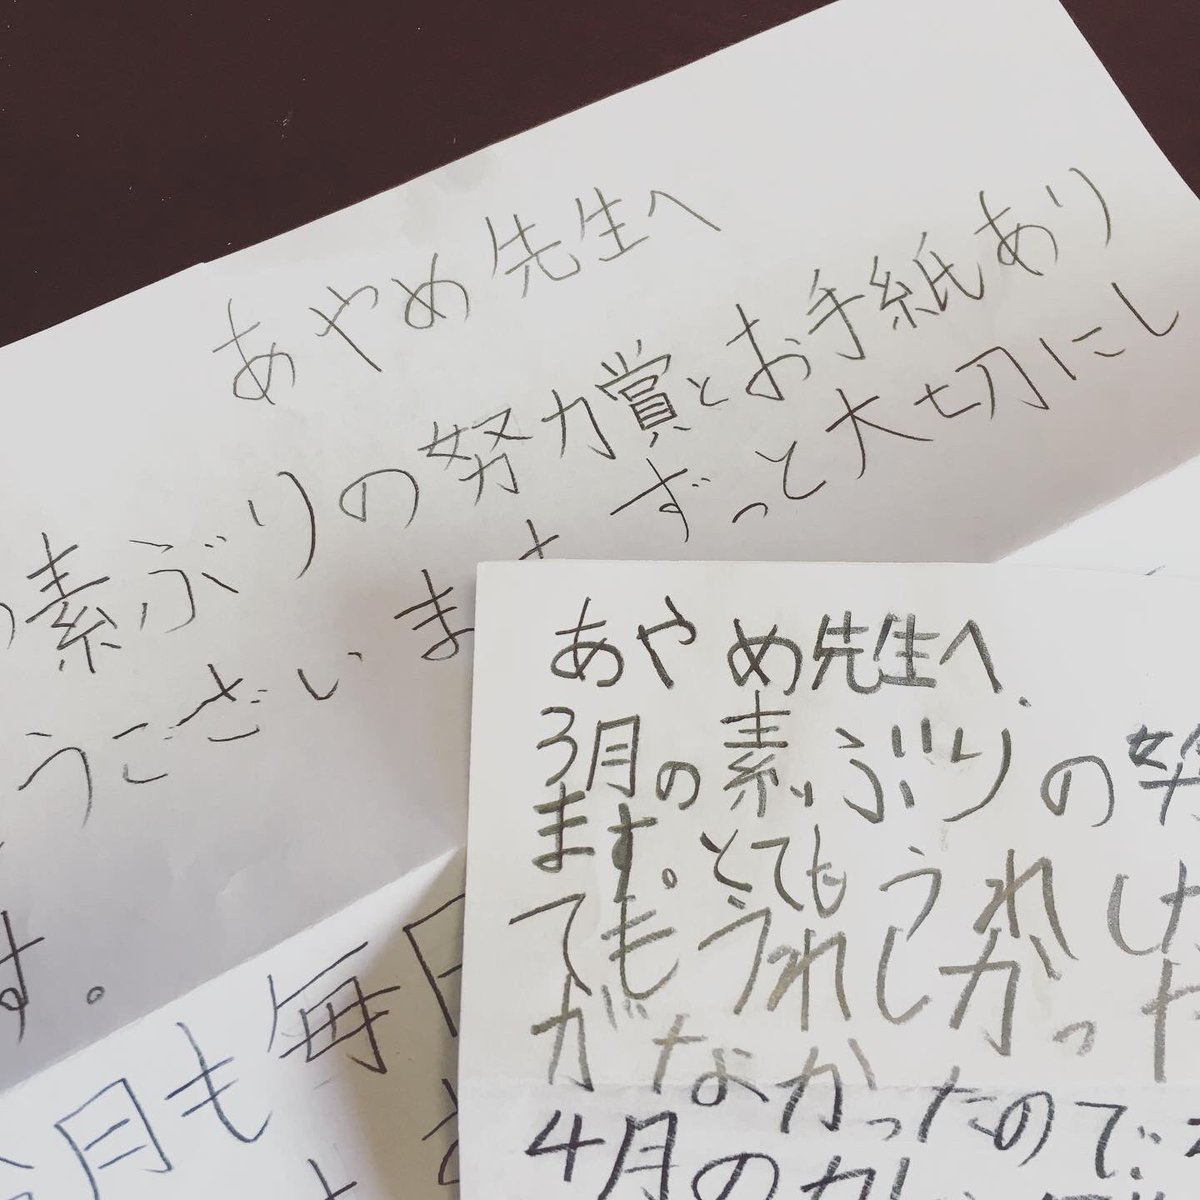 あやめ先生へ
の素ぶりの努力賞とお手紙あり
うございま ずっと大切にし
す。
月も毎日
あやめ先生へ
3月の素ぶりの努
ます。とてもうれし
てもうれしかった
がなかったので
4月の